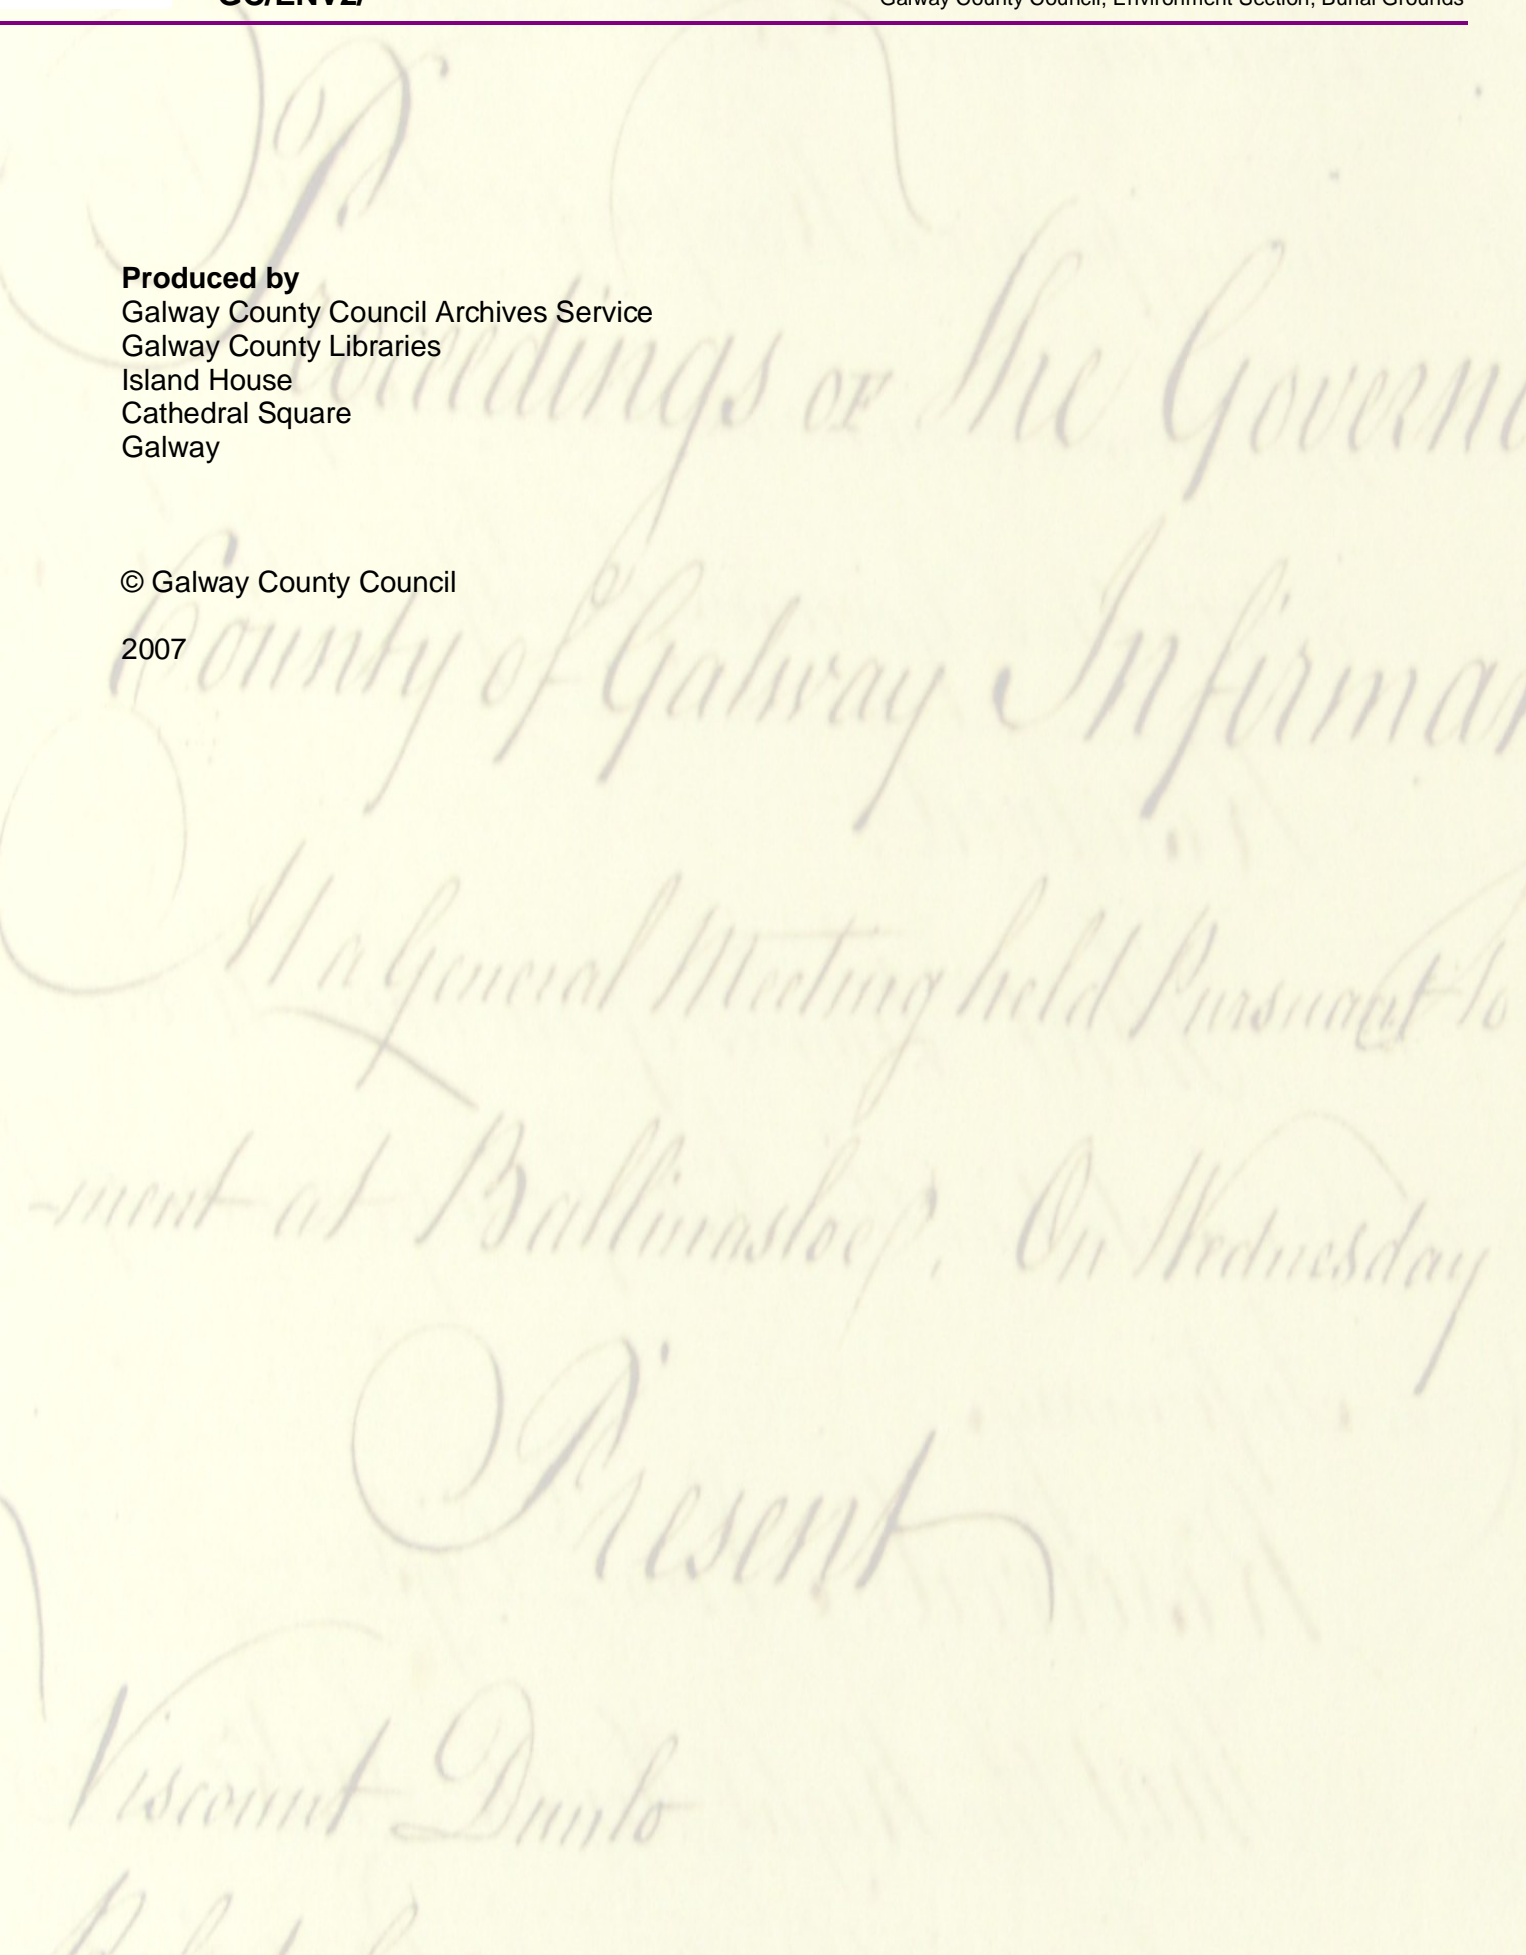 GC/ENV2/
Galway County Council, Environment Section, Burial Grounds
Produced by
Galway County Council Archives Service
Galway County Libraries
Island House
Cathedral Square
Galway
© Galway County Council
2007
Proceedings OF The Governo
County of Galway Infirmar
At a General Meeting held Pursuant to
-ment at Ballinasloe. On Wednesday
Present
Viscount Dunlo